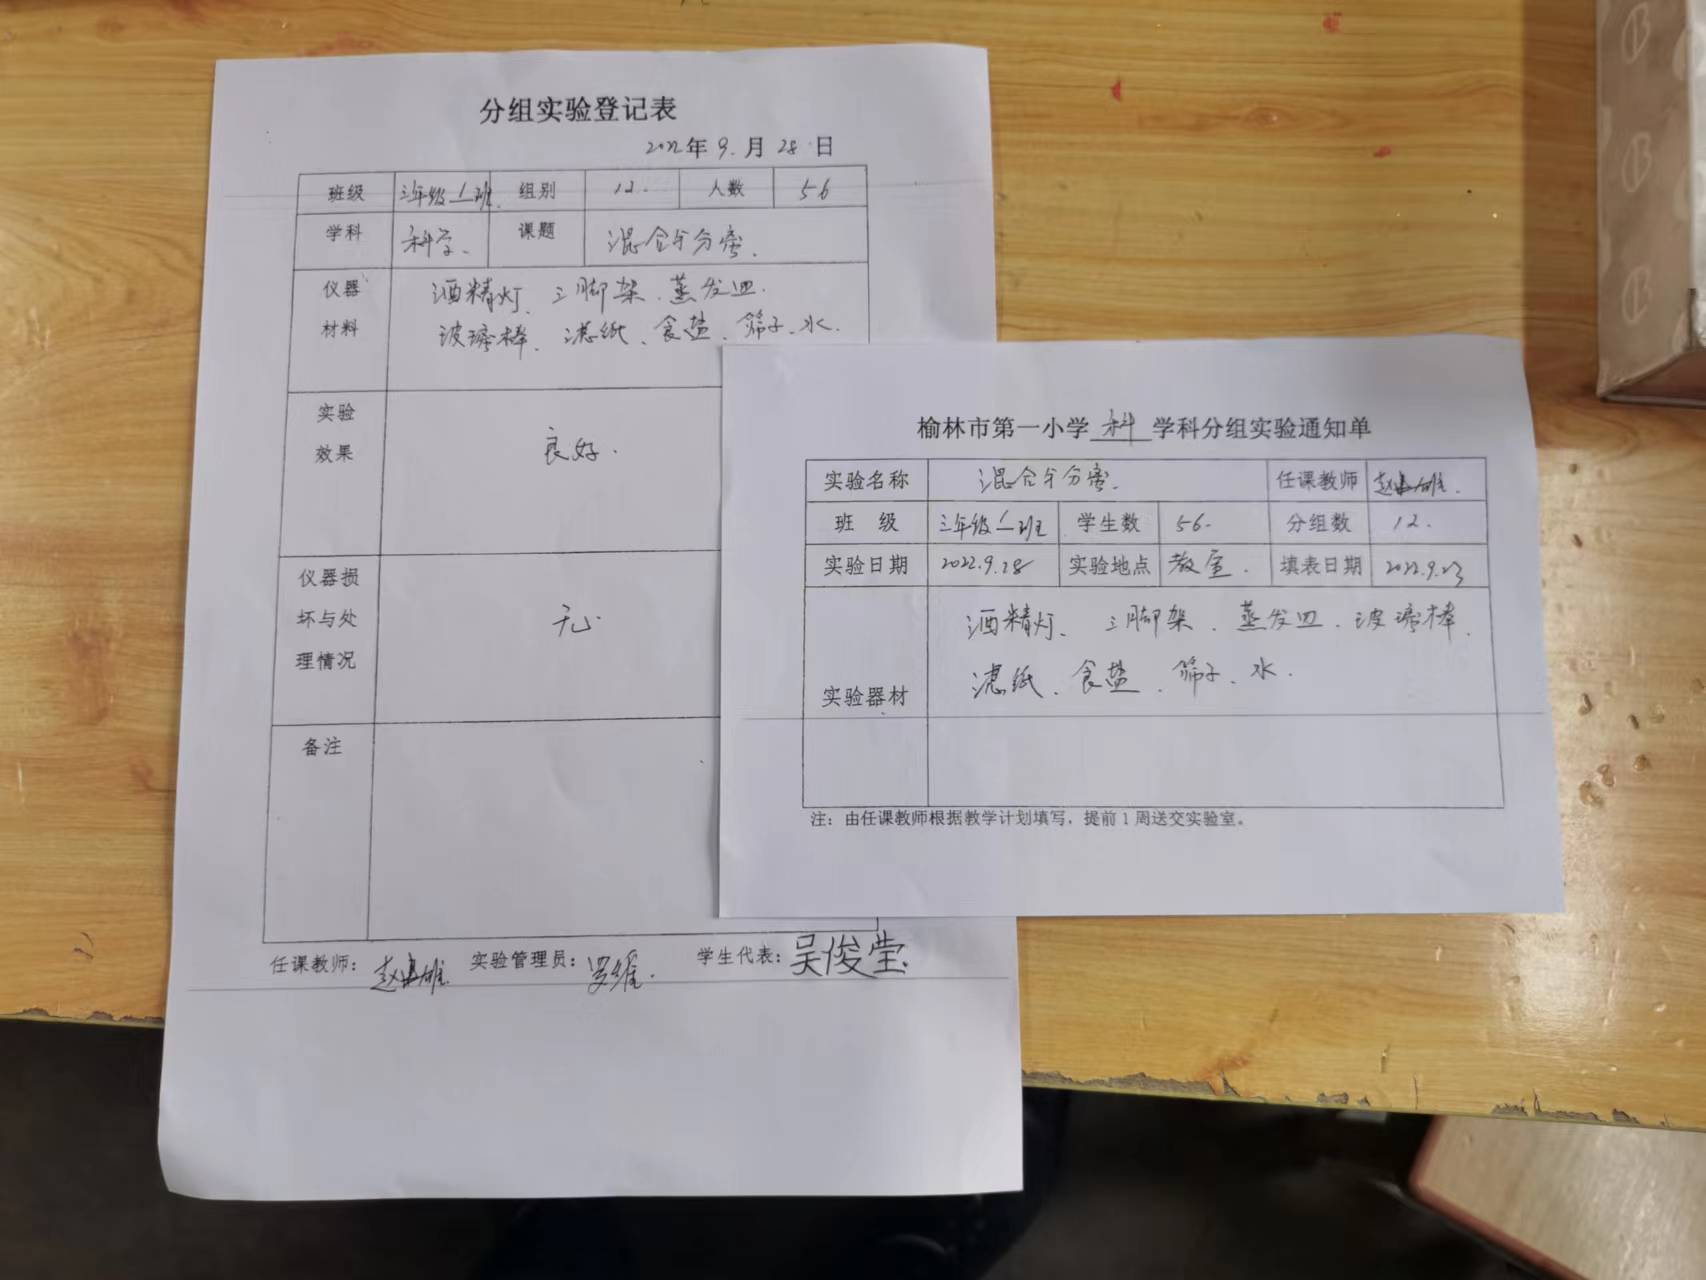 分组实验登记表
2022年9月28日
班级 三年级1班 组别 12. 人数 56
学科 科学. 课题 混合与分离.
仪器 酒精灯、三脚架、蒸发皿.
材料 玻璃棒、滤纸、食盐、筛子、水.
实验
效果 良好.
仪器损
坏与处 无
理情况
备注
任课教师: 实验管理员: 学生代表: 吴俊莹
榆林市第一小学 科 学科分组实验通知单
实验名称 混合与分离. 任课教师
班 级 三年级1班 学生数 56. 分组数 12.
实验日期 2022.9.28 实验地点 教室. 填表日期 2022.9.23
酒精灯、三脚架、蒸发皿、玻璃棒、
滤纸、食盐、筛子、水.
实验器材
注：由任课教师根据教学计划填写，提前1周送交实验室。